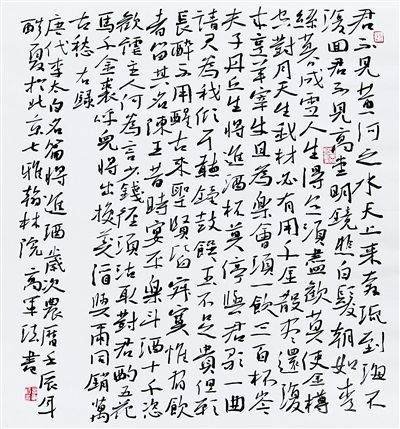 君不見黃河之水天上來奔流到海不
復回君不見高堂明鏡悲白髮朝如青
絲暮成雪人生得意須盡歡莫使金樽
空對月天生我材必有用千金散盡還復
來烹羊宰牛且為樂會須一飲三百杯岑
夫子丹丘生將進酒杯莫停與君歌一曲
請君為我傾耳聽鐘鼓饌玉不足貴但願
長醉不用醒古來聖賢皆寂寞惟有飲
者留其名陳王昔時宴平樂斗酒十千恣
歡謔主人何為言少錢徑須沽取對君酌五花
馬千金裘呼兒將出換美酒與爾同銷萬
古愁 右錄
唐代李太白名篇將進酒歲次農曆壬辰年
酷夏於北京七雅翰林院高軍法書